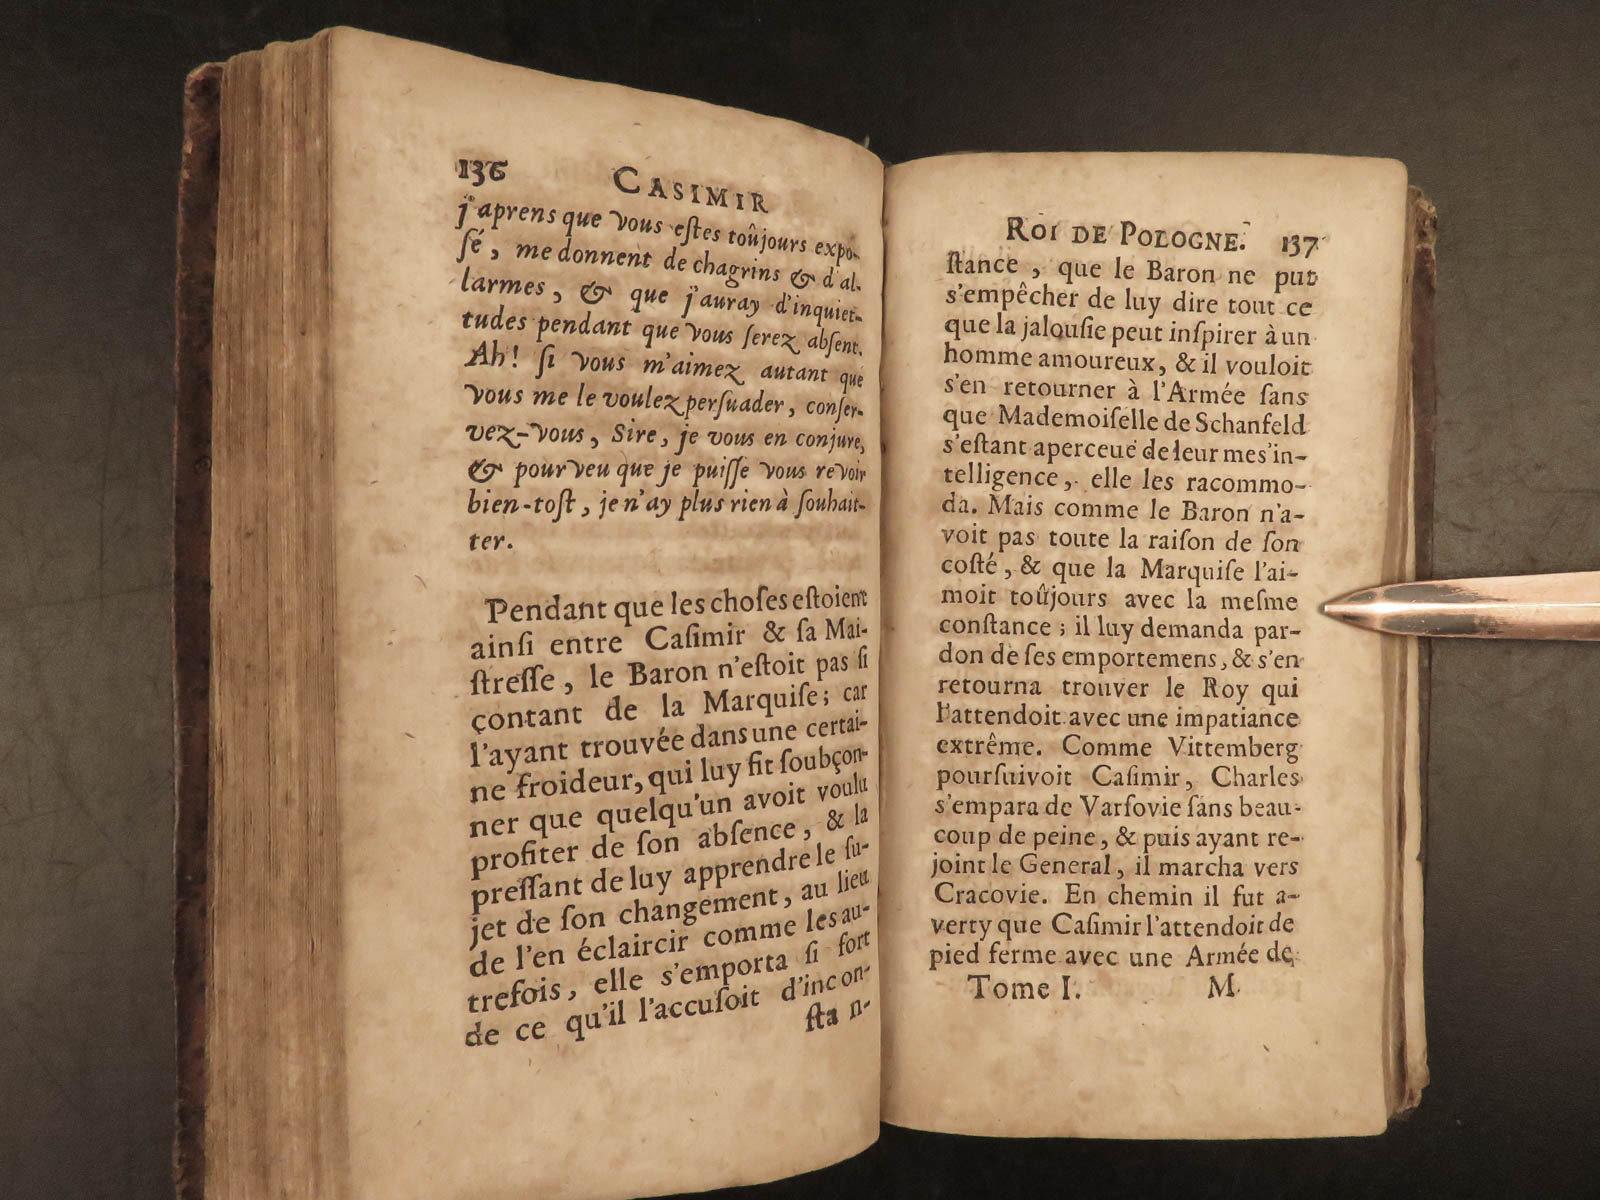 136 CASIMIR
j'aprens que vous estes toûjours expo-
sé, me donnent de chagrins & d'al-
larmes, & que j'auray d'inquiet-
tudes pendant que vous serez absent.
Ah! si vous m'aimez autant que
vous me le voulez persuader, conser-
vez-vous, Sire, je vous en conjure,
& pourveu que je puisse vous revoir
bien-tost, je n'ay plus rien à souhait-
ter.
Pendant que les choses estoient
ainsi entre Casimir & sa Mai-
stresse, le Baron n'estoit pas si
çontant de la Marquise; car
l'ayant trouvée dans une certai-
ne froideur, qui luy fit soubçon-
ner que quelqu'un avoit voulu
profiter de son absence, & la
pressant de luy apprendre le su-
jet de son changement, au lieu
de l'en éclaircir comme les au-
trefois, elle s'emporta si fort
de ce qu'il l'accusoit d'incon-
stan-
ROI DE POLOGNE. 137
stance, que le Baron ne put
s'empêcher de luy dire tout ce
que la jalousie peut inspirer à un
homme amoureux, & il vouloit
s'en retourner à l'Armée sans
que Mademoiselle de Schanfeld
s'estant aperceuë de leur mes'in-
telligence, elle les racommo-
da. Mais comme le Baron n'a-
voit pas toute la raison de son
costé, & que la Marquise l'ai-
moit toûjours avec la mesme
constance; il luy demanda par-
don de ses emportemens, & s'en
retourna trouver le Roy qui
l'attendoit avec une impatiance
extrême. Comme Vittemberg
poursuivoit Casimir, Charles
s'empara de Varsovie sans beau-
coup de peine, & puis ayant re-
joint le General, il marcha vers
Cracovie. En chemin il fut a-
verty que Casimir l'attendoit de
pied ferme avec une Armée de
Tome I. M